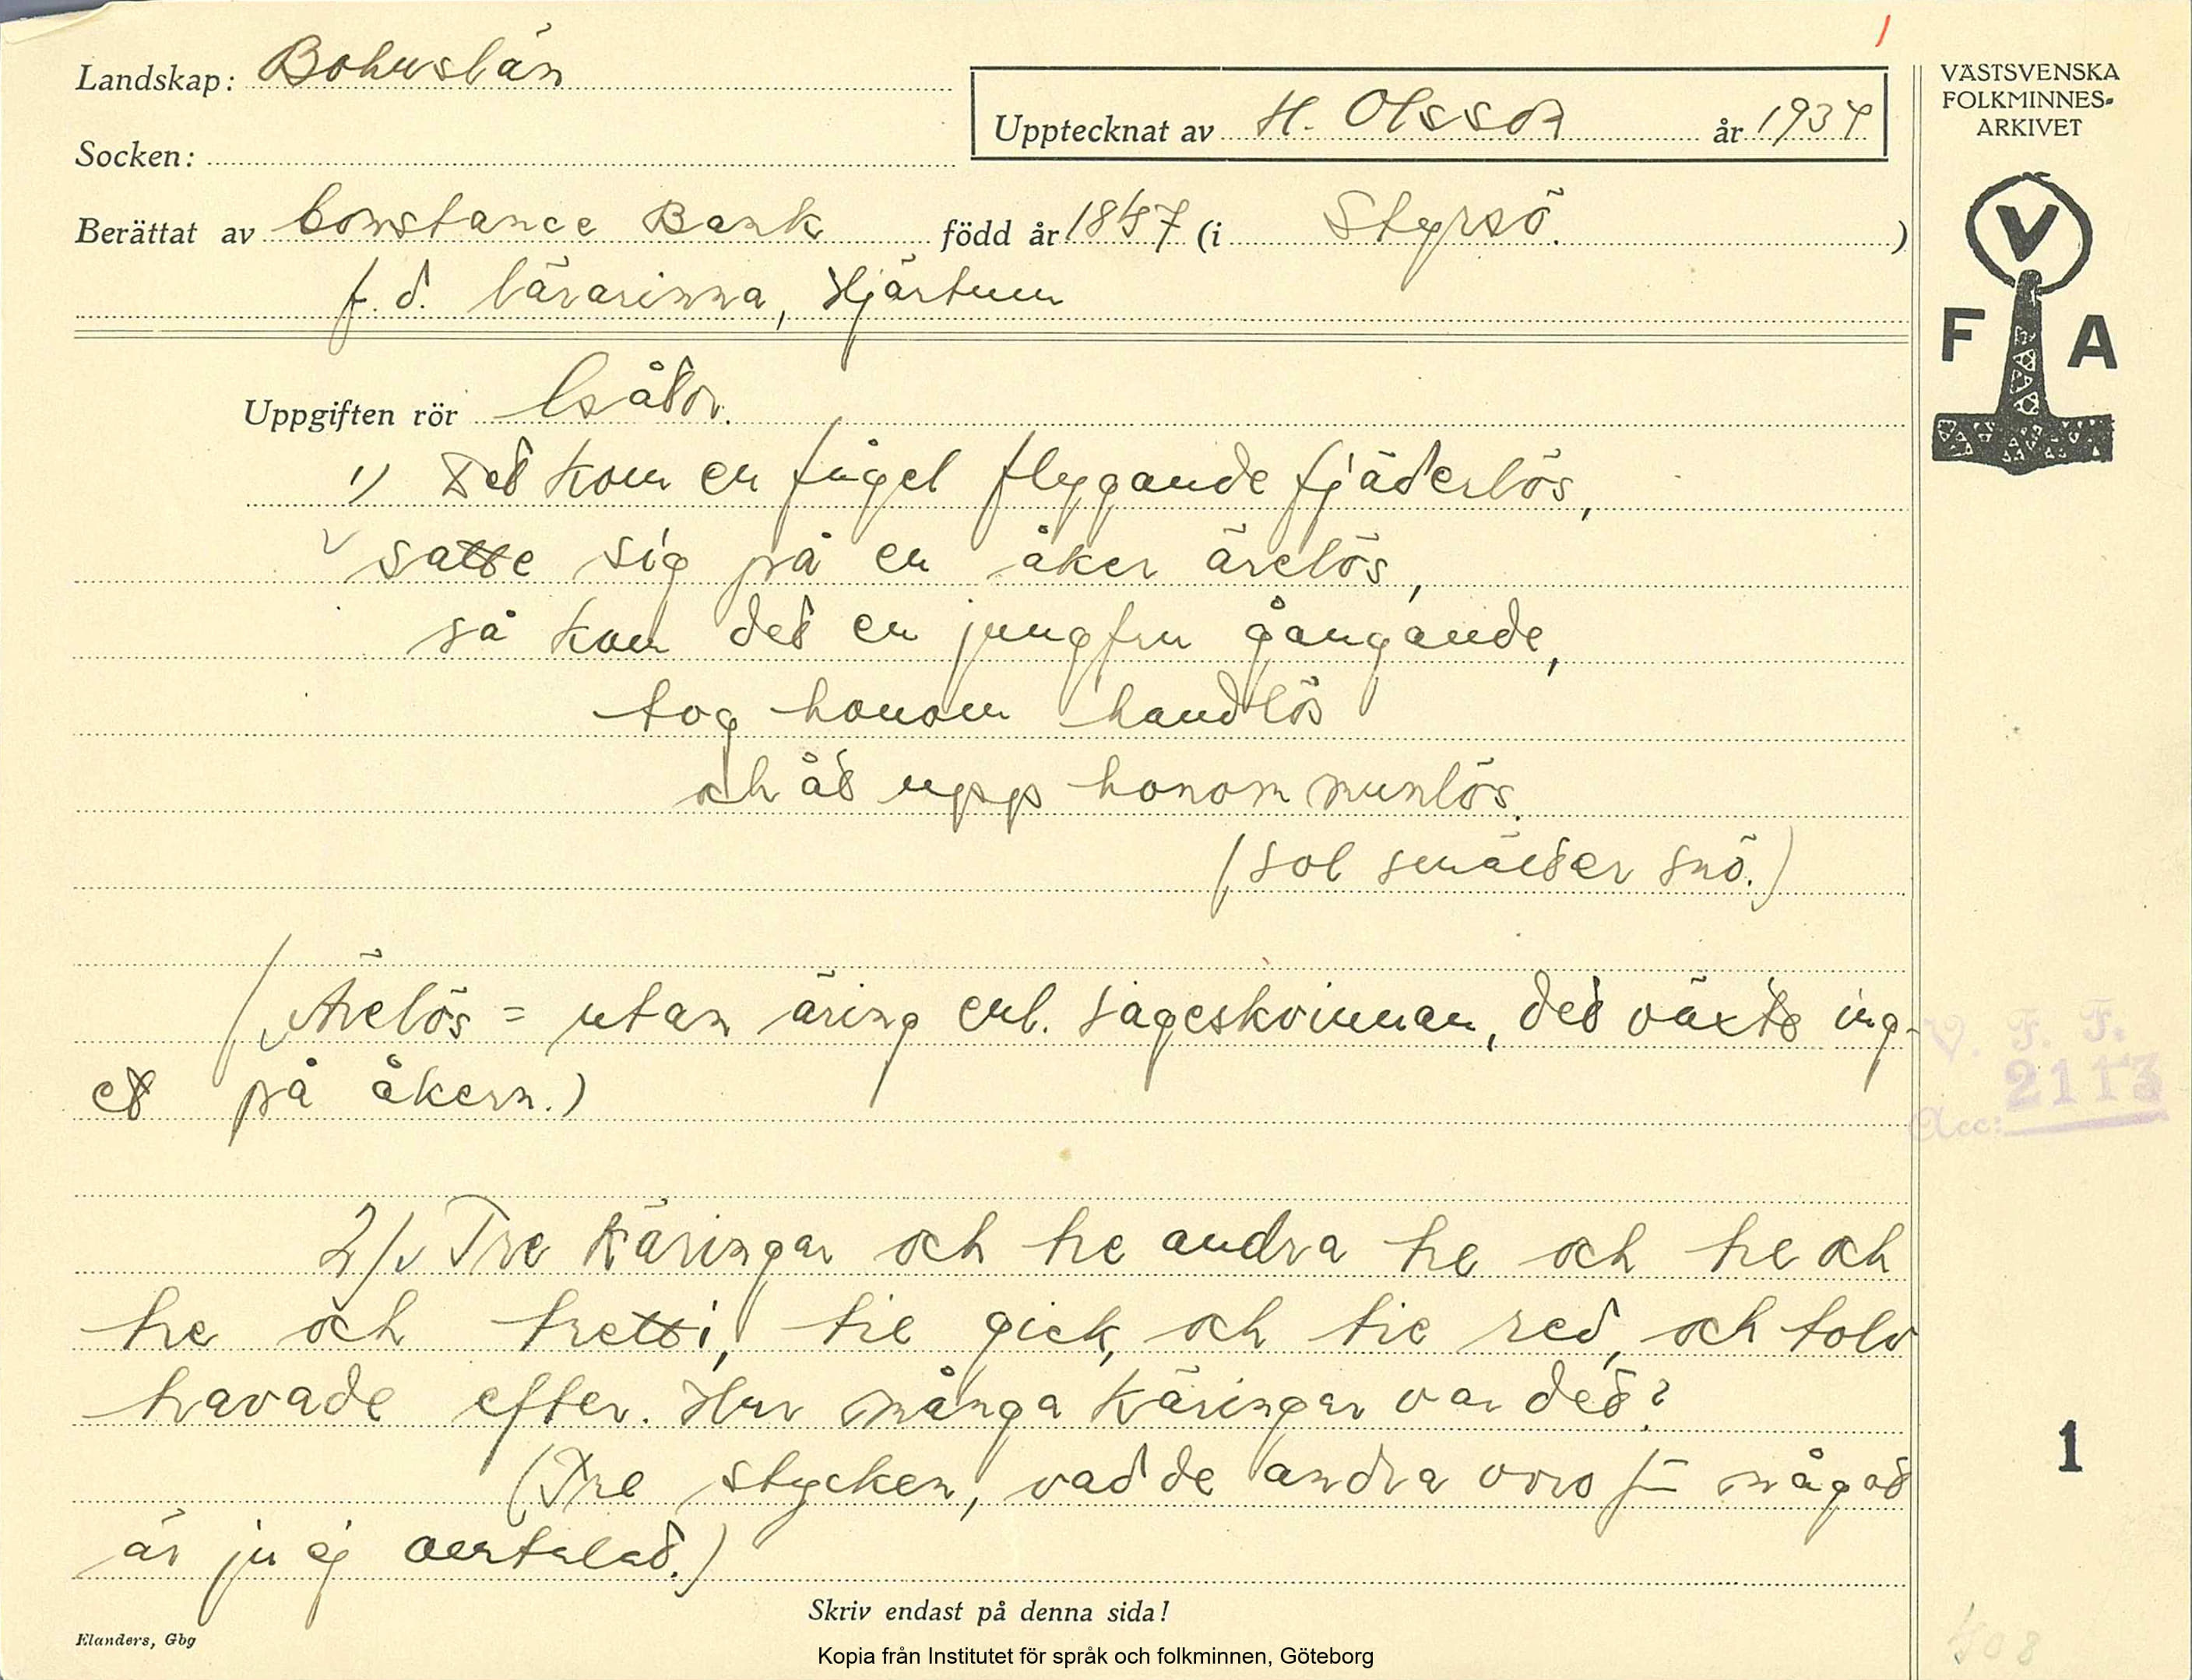 Landskap: Bohuslän
Socken:
Upptecknat av H. Olsson år 1934
Berättat av Constance Bank född år 1847 (i Styrsö.)
f.d. lärarinna, Hjärtum
Uppgiften rör Gåtor.
1) Det kom en fågel flygande fjäderlös,
satte sig på en åker ärelös,
så kom det en jungfru gångande,
tog honom handlös
och åt upp honom munlös.
(sol smälter snö.)
(Ärelös = utan äring enl. sageskvinnan, det växte ing-
et på åkern.)
2) Tre käringar och tre andra tre och tre och
tre och tretti, tie gick, och tie red, och tolv
travade efter. Hur många käringar var det?
(Tre stycken, vad de andra voro för något
är ju ej omtalat.)
Skriv endast på denna sida!
Elanders, Gbg
Kopia från Institutet för språk och folkminnen, Göteborg
1
VÄSTSVENSKA
FOLKMINNES-
ARKIVET
V
F A
V. F. F.
2113
Acc:
1